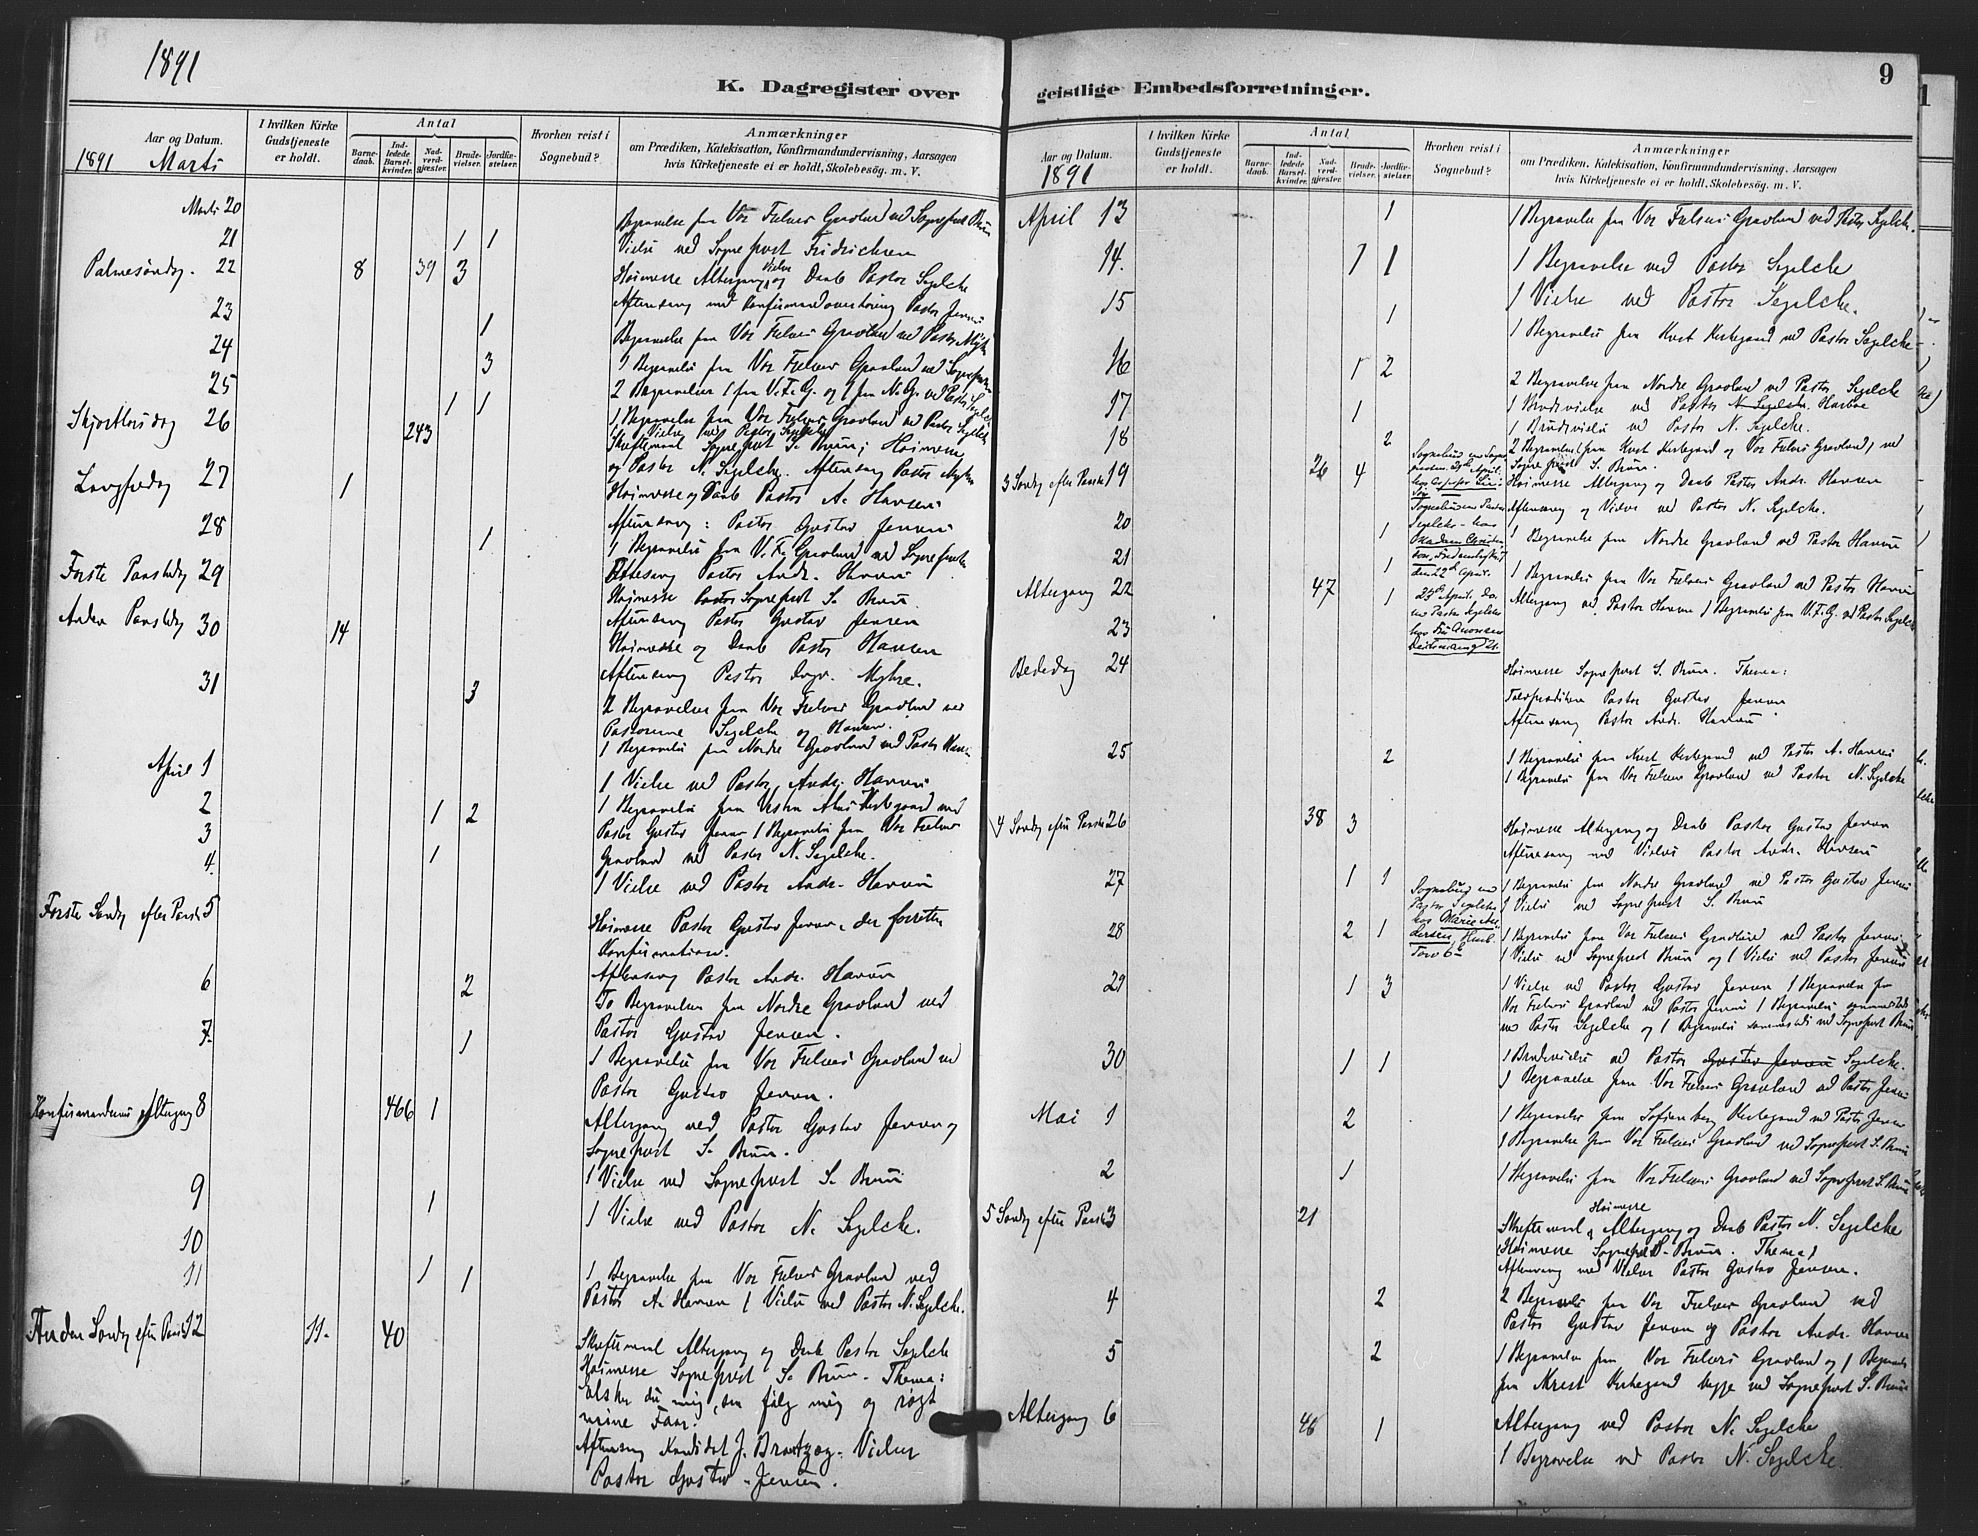 1891
K. Dagregister over
Aar og Datum.
1891 Marts
I hvilken Kirke Gudstjeneste er holdt.
Antal
Barnedaab.
Indledede Barselkvinder.
Nadverdgjæster.
Brudevielser.
Jordfæstelser.
Hvorhen reist i Sognebud?
Anmærkninger
om Prædiken, Katekisation, Konfirmandundervisning, Aarsagen
hvis Kirketjeneste ei er holdt, Skolebesøg. m. V.
Marts 20 Begravelse fra Vor Frelsers Gravlund ved Sognepræst Bruun
21 1 1 Vielse ved Sognepræst Fredrichsen
Palmesøndag. 22 8 39 3 Høimesse Altergang, Vielse og Daab Pastor Segelcke
Aftensang med Konfirmandoverhøring Pastor Jensen
23 1
Begravelse fra Vor Frelsers Gravlund ved Pastor
24 3 1 Begravelse fra Vor Frelsers Gravlund ved Sognepræsten
25 2 Begravelser 1 fra V.F.G. og 1 fra N.G. ved Pastor Segelcke
1 1
1 Begravelse fra Vor Frelsers Gravlund ved Pastor Segelcke
1 Vielse ved Pastor Segelcke
Skjærtorsdag 26 243 Skriftemaal Sognepræst S. Bruun; Høimesse
og Pastor N. Segelcke. Aftensang Pastor
Langfredag 27 1 Høimesse og Daab Pastor A. Hansen
Aftensang: Pastor Gustav Jensen
28 1 1 Begravelse fra V.F. Gravlund ved Sognepræsten
Første Paaskedag 29 Ottesang Pastor Andr. Hansen
Høimesse Pastor Sognepræst S. Bruun
Aftensang Pastor Gustav Jensen
Anden Paaskedag 30 14 Høimesse og Daab Pastor Hansen
Aftensang Pastor
31 3
2 Begravelser fra Vor Frelsers Gravlund ved
Pastorerne Segelcke og Hansen.
1 Begravelse fra Nordre Gravlund ved Pastor
April 1
1 Vielse ved Pastor Andr. Hansen
2 1 2 1 Begravelse fra Vestre Akers Kirkegaard ved
3 Pastor Gustav Jensen 1 Begravelse fra Vor Frelsers
4. 1 Gravlund ved Pastor N. Segelcke.
1 Vielse ved Pastor Andr. Hansen
Første Søndag efter Paaske 5
Høimesse Pastor Gustav Jensen, der forretter
Konfirmationen.
Aftensang Pastor Andr. Hansen
6 2 To Begravelser fra Nordre Gravlund ved
Pastor Gustav Jensen.
7. 1
1 Begravelse fra Vor Frelsers Gravlund ved
Pastor Gustav Jensen.
Konfirmandernes Altergang 8 466 1
Altergang ved Pastor Gustav Jensen og
Sognepræst S. Bruun.
1 Vielse ved Sognepræst S. Bruun
9 1 1 Vielse ved Pastor N. Segelcke.
10
1
11 1 1 Begravelse fra Vor Frelsers Gravlund ved
Pastor A. Hansen 1 Vielse ved Pastor N. Segelcke.
Anden Søndag efter Paaske 12 11. 40
Skriftemaal Altergang og Daab Pastor Segelcke
Høimesse Sognepræst S. Bruun. Thema:
elsker du mig, saa følg mig og røgt
mine Faar.
Aftensang Kandidat J. Vielser
Pastor Gustav Jensen.
geistlige Embedsforretninger.
9
Aar og Datum.
1891
I hvilken Kirke Gudstjeneste er holdt.
Antal
Barnedaab.
Indledede Barselkvinder.
Nadverdgjæster.
Brudevielser.
Jordfæstelser.
Hvorhen reist i Sognebud?
Anmærkninger
om Prædiken, Katekisation, Konfirmandundervisning, Aarsagen
hvis Kirketjeneste ei er holdt, Skolebesøg. m. V.
April 13 1 1 Begravelse fra Vor Frelsers Gravlund ved Pastor Segelcke.
14. 1 1 1 Begravelse ved Pastor Segelcke
1 Vielse ved Pastor Segelcke.
15 1
1 Begravelse fra Krist Kirkegaard ved Pastor Segelcke
16 1 2
2 Begravelser fra Nordre Gravlund ved Pastor Segelcke
1 Brudevielse ved Pastor N. Segelcke. Hansen
17 1 1 Brudevielse ved Pastor N. Segelcke.
18 2 2 Begravelser fra Krist Kirkegaard og Vor Frelsers Gravlund, ved
Sognepræst S. Bruun.
3 Søndag efter Paaske 19 26 4 Høimesse Altergang og Daab Pastor Andr. Hansen
Aftensang og Vielser ved Pastor N. Segelcke.
20 1 1 Begravelse fra Nordre Gravlund ved Pastor Hansen
21 1 1 Begravelse fra Vor Frelsers Gravlund ved Pastor Hansen
Altergang 22 47 1 Altergang ved Pastor Hansen 1 Begravelse fra V.F.G. ved Pastor Segelcke
23
Bededag 24 Høimesse Sognepræst S. Bruun. Thema:
Pastor Gustav Jensen
Aftensang Pastor Andr. Hansen
25 2 1 Begravelse fra Krist Kirkegaard ved Pastor A. Hansen
1 Begravelse fra Vor Frelsers Gravlund ved Pastor N. Segelcke
4 Søndag efter Paaske 26 38 3
Høimesse Altergang og Daab Pastor Gustav Jensen
Aftensang med Vielser Pastor Andr. Hansen
27 1 1 Sognebud ved Pastor Segelcke hos Marie 1 Begravelse fra Nordre Gravlund ved Pastor Gustav Jensen
1 Vielse ved Sognepræst S. Bruun
28 2 1 1 Begravelse fra Vor Frelsers Gravlund ved Pastor Jensen
1 Vielse ved Sognepræst Bruun og 1 Vielse ved Pastor Jensen
29 1 3 1 Vielse ved Pastor Gustav Jensen 1 Begravelse fra
Vor Frelsers Gravlund ved Pastor Jensen 1 Begravelse sammesteds
ved Pastor Segelcke og 1 Begravelse sammesteds ved Sognepræst Bruun
30 1 1 1 Brudevielse ved Pastor Gustav Jensen Segelcke.
1 Begravelse fra Vor Frelsers Gravlund ved Pastor Jensen
Mai 1 2 1 Begravelse fra Sofienberg Kirkegaard ved Pastor Jensen
1 Begravelse fra Vor Frelsers Gravlund ved Sognepræst S. Bruun
2 1 1 Begravelse fra Vor Frelsers Gravlund ved Sognepræst S. Bruun
5 Søndag efter Paaske 3 21 Høimesse
Skriftemaal, Altergang og Daab Pastor N. Segelcke
Høimesse Sognepræst S. Bruun. Thema:
Aftensang med Vielser Pastor Gustav Jensen.
4 2 2 Begravelser fra Vor Frelsers Gravlund ved
Pastor Gustav Jensen og Pastor Andr. Hansen
5 2 1 Begravelse fra Vor Frelsers Gravlund og 1 Begravelse
fra Krist Kirkegaard begge ved Sognepræst S. Bruun
Altergang 6 46 1 Altergang ved Pastor N. Segelcke
1 Begravelse ved Pastor N. Segelcke.